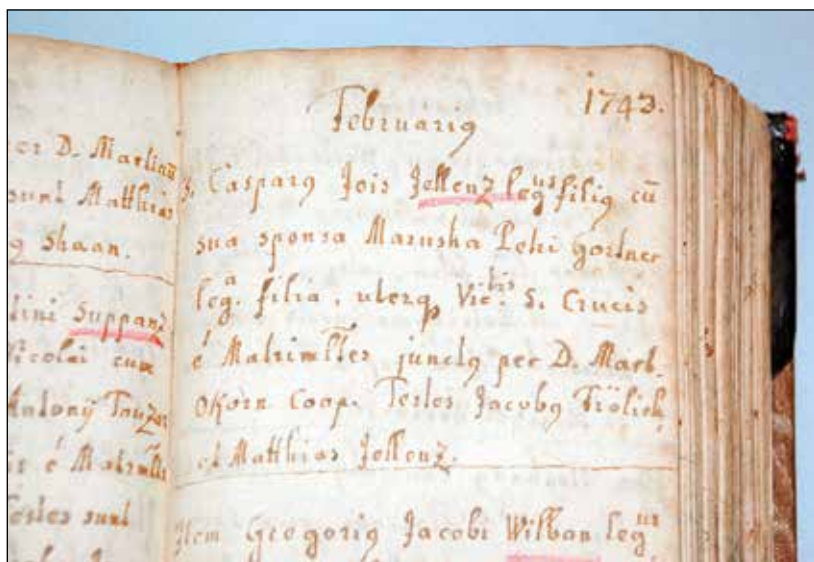 er D. Martinū
sunt Matthias
9 Shaan.
lini Suppanz
Nicolai cum
Antonÿ
é Matrimłłr
Testes sunt
1743.
Februari9
5. Caspar9 Jois Jellenz legus fili9 cū
sua sponsa Marusha Petri gortner
lega. filia, uterq Viebis S. Crucis
é Matrimłłer junct9 per D. Mart.
Okorn Coop. Testes Jacob9 Frölich
et Matthias Jellenz.
Item Gregori9 Jacobi Wilban legus